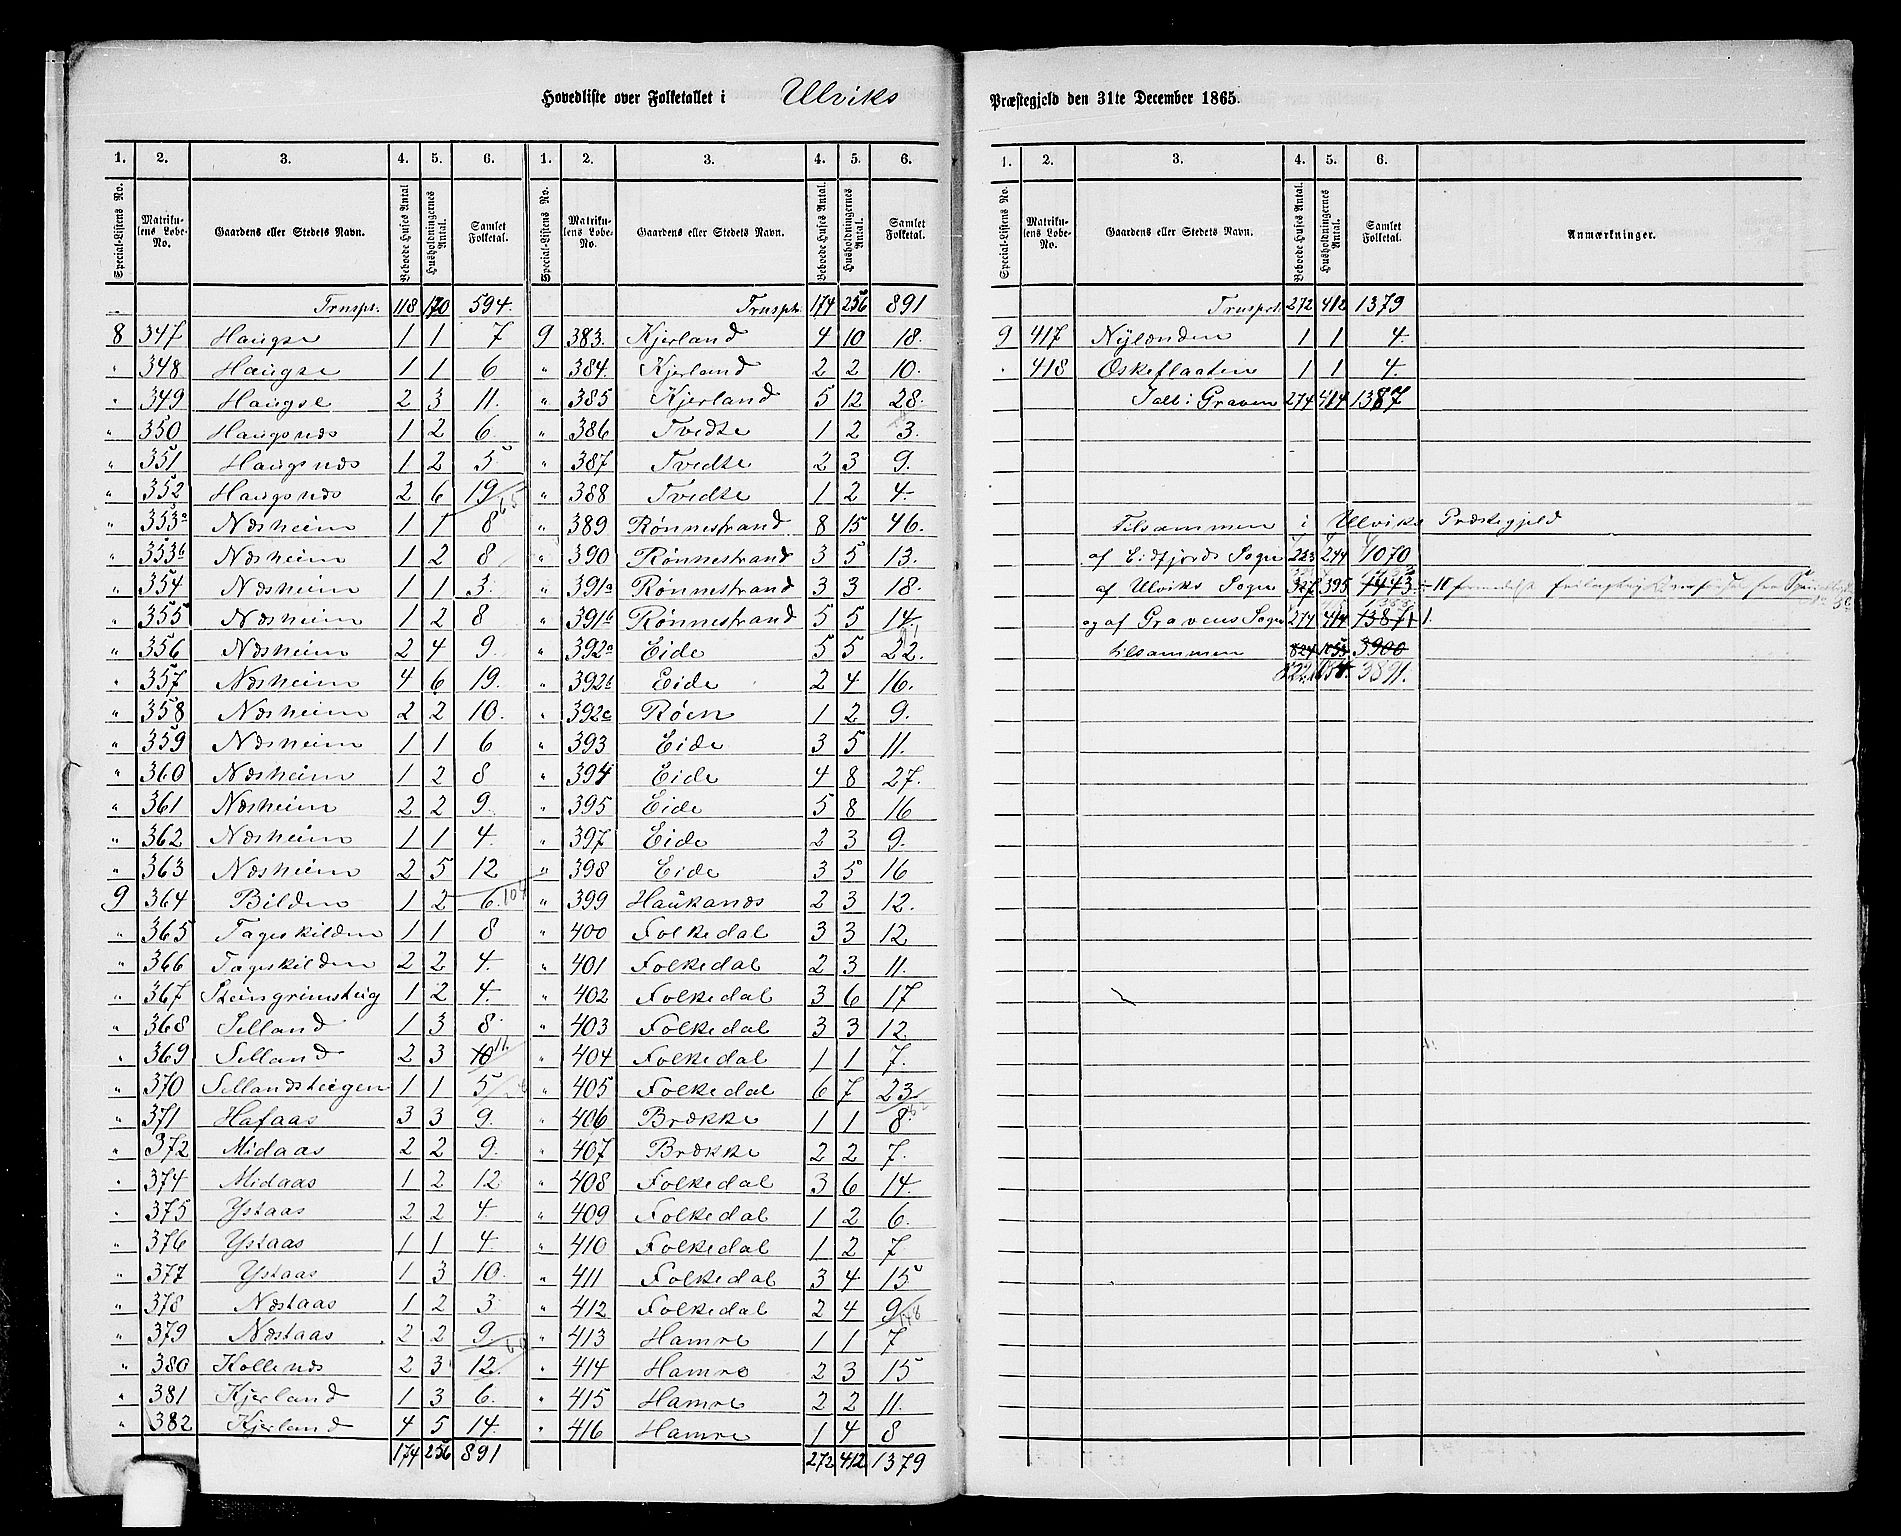 Hovedliste over Folketallet i Ulviks Præstegjeld den 31te December 1865.
1. 2. 3. 4. 5. 6. 1. 2. 3. 4. 5. 6.
Special-Listens No. Matrikulens Løbe-No. Gaardens eller Stedets Navn. Beboede Huses Antal Husholdningernes Antal. Samlet Folketal. Special-Listens No. Matrikulens Løbe-No. Gaardens eller Stedets Navn. Beboede Huses Antal. Husholdningernes Antal. Samlet Folketal.
Trnspt. 118 170 594. Trnspt. 174 256 891
8 347 Haugse 1 1 7 9 383. Kjerland 4 10 18.
" 348 Haugse 1 1 6 " 384. Kjerland 2 2 10.
" 349 Haugse 2 3 11. " 385 Kjerland 5 12 28.
" 350 Haugsnæs 1 2 6. " 386 Tvedte 1 2 3.
" 351 Haugsnæs 1 2 5. " 387 Tvedte 2 3 9.
" 352 Haugsnæs 2 6 19 " 388 Tvedte 1 2 4.
" 353a Næsheim 1 1 8 " 389 Rønnestrand 8 15 46.
" 353b Næsheim 1 2 8 " 390 Rønnestrand 3 5 13.
" 354 Næsheim 1 1 3. " 391a Rønnestrand 3 3 18.
" 355 Næsheim 1 2 8 " 391b Rønnestrand 5 5 14.
" 356 Næsheim 2 4 9. " 392a Eide 5 5 22.
" 357 Næsheim 4 6 19. " 392b Eide 2 4 16.
" 358 Næsheim 2 2 10. " 392c Røen 1 2 9.
" 359 Næsheim 1 1 6 " 393 Eide 3 5 11.
" 360 Næsheim 1 2 8 " 394 Eide 4 8 27.
" 361 Næsheim 2 2 9. " 395 Eide 5 8 16
" 362 Næsheim 1 1 4. " 397 Eide 2 3 9.
" 363 Næsheim 2 5 12 " 398 Eide 3 5 16
9 364 Bilden 1 2 6. " 399 Haukanæs 2 3 12.
" 365 Tageskilden 1 1 8 " 400 Folkedal 3 3 12
" 366 Tageskilden 2 2 4. " 401 Folkedal 2 3 11.
" 367 Steingrimsteig 1 2 4. " 402 Folkedal 3 6 17
" 368 Selland 1 3 8. " 403 Folkedal 3 3 12
" 369 Selland 2 3 10 11. " 404 Folkedal 1 1 7.
" 370 Sellandsteigen 1 1 5 " 405 Folkedal 6 7 23
" 371 Hafaas 3 3 9. " 406 Brække 1 1 8.
" 372 Midaas 2 2 9. " 407 Brække 2 2 7.
" 374 Midaas 1 2 12. " 408 Folkedal 3 6 14.
" 375 Ystaas 2 2 4. " 409 Folkedal 1 2 6.
" 376 Ystaas 1 1 4. " 410 Folkedal 1 2 7
" 377 Ystaas 1 3 10. " 411 Folkedal 3 4 15
" 378 Næstaas 1 2 3 " 412 Folkedal 2 4 9
" 379 Næstaas 2 2 9. " 413 Hamre 1 1 7
" 380 Kollenæs 2 3 12. " 414 Hamre 2 3 15
" 381 Kjerland 1 3 6. " 415 Hamre 2 2 11.
" 382 Kjerland 4 5 14. " 416 Hamre 1 4 8
174 256 891 272 412 1379
1. 2. 3. 4. 5. 6.
Special-Listens No. Matrikulens Løbe-No. Gaardens eller Stedets Navn. Beboede Huses Antal. Husholdningernes Antal. Samlet Folketal. Anmærkninger.
Trnspt. 272 412 1379
9 417 Nylænden 1 1 4.
" 418 Oskeflaaten 1 1 4.
Ialt i Graven 274 414 1387
Tilsammen i Ulviks Præstegjeld
af Eidfjords Sogn 223 244 1070
af Ulviks Sogn 327 395 1443
og af Gravens Sogn 274 414 1387
tilsammen 824 1053 3900
822 3891.